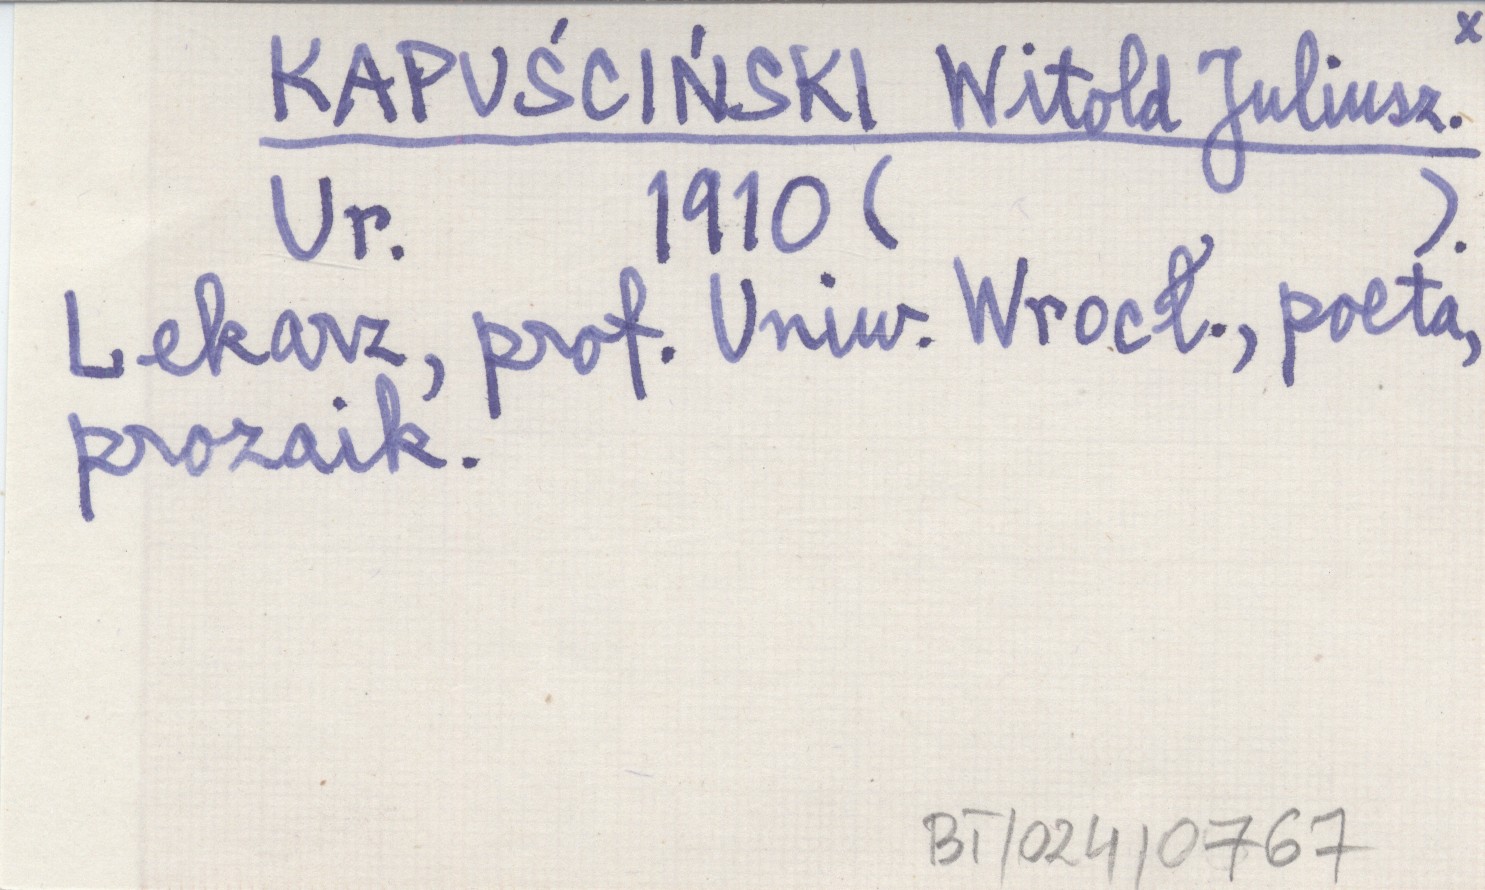 KAPUŚCIŃSKI Witold Juliusz. x
Ur. 1910 ( ).
Lekarz, prof. Uniw. Wrocł., poeta,
prozaik.
BT/024/0767